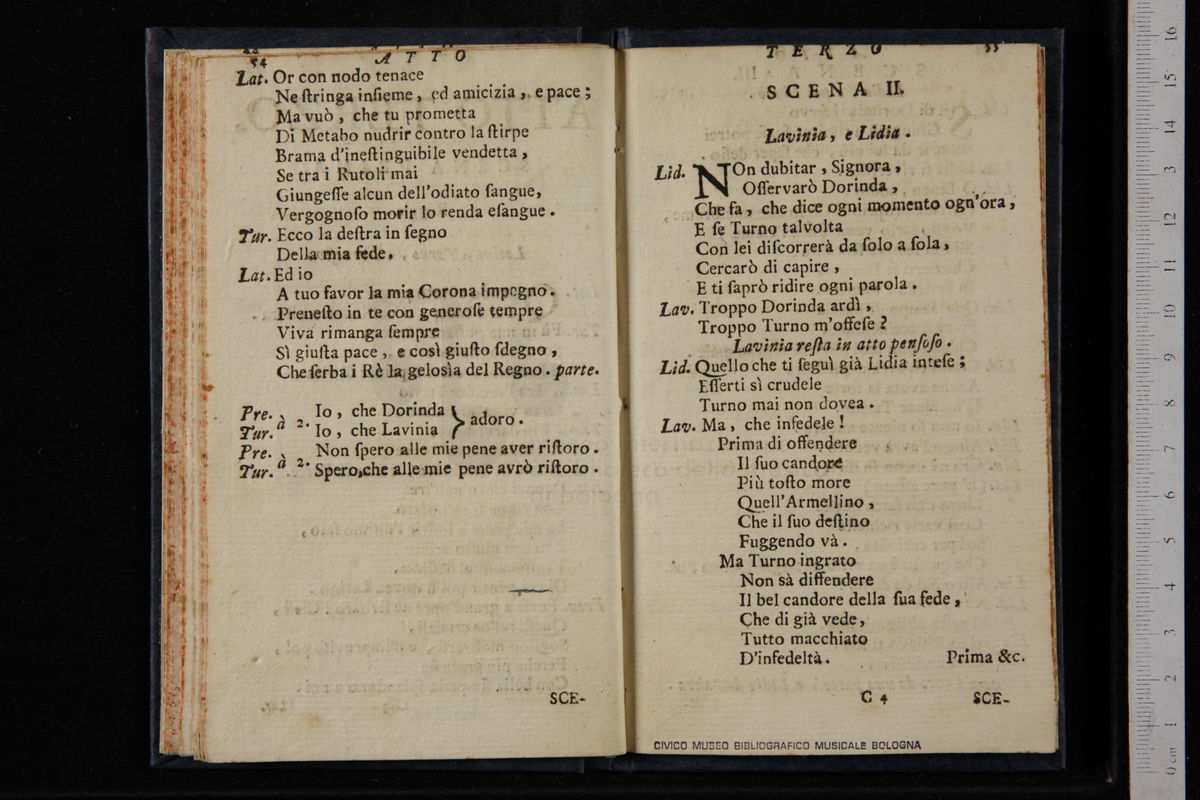 54 ATTO
Lat. Or con nodo tenace
Ne ſtringa inſieme, ed amicizia, e pace;
Ma vuò, che tu prometta
Di Metabo nudrir contro la ſtirpe
Brama d'ineſtinguibile vendetta,
Se tra i Rutoli mai
Giungeſſe alcun dell'odiato ſangue,
Vergognoſo morir lo renda eſangue.
Tur. Ecco la deſtra in ſegno
Della mia fede.
Lat. Ed io
A tuo favor la mia Corona impegno.
Preneſto in te con generoſe tempre
Viva rimanga ſempre
Sì giuſta pace, e così giuſto ſdegno,
Che ſerba i Rè la gelosìa del Regno. parte.
Pre. Tur. à 2. Io, che Dorinda
Io, che Lavinia } adoro.
Pre. Tur. à 2. Non ſpero alle mie pene aver riſtoro.
Spero, che alle mie pene avrò riſtoro.
SCE-
TERZO 55
SCENA II.
Lavinia, e Lidia.
Lid. NOn dubitar, Signora,
Oſſervarò Dorinda,
Che fa, che dice ogni momento ogn'ora,
E ſe Turno talvolta
Con lei diſcorrerà da ſolo a ſola,
Cercarò di capire,
E ti ſaprò ridire ogni parola.
Lav. Troppo Dorinda ardì,
Troppo Turno m'offeſe?
Lavinia reſta in atto penſoſo.
Lid. Quello che ti ſeguì già Lidia inteſe;
Eſſerti sì crudele
Turno mai non dovea.
Lav. Ma, che infedele!
Prima di offendere
Il ſuo candore
Più toſto more
Quell'Armellino,
Che il ſuo deſtino
Fuggendo và.
Ma Turno ingrato
Non sà diffendere
Il bel candore della ſua fede,
Che di già vede,
Tutto macchiato
D'infedeltà. Prima &c.
C 4 SCE-
CIVICO MUSEO BIBLIOGRAFICO MUSICALE BOLOGNA